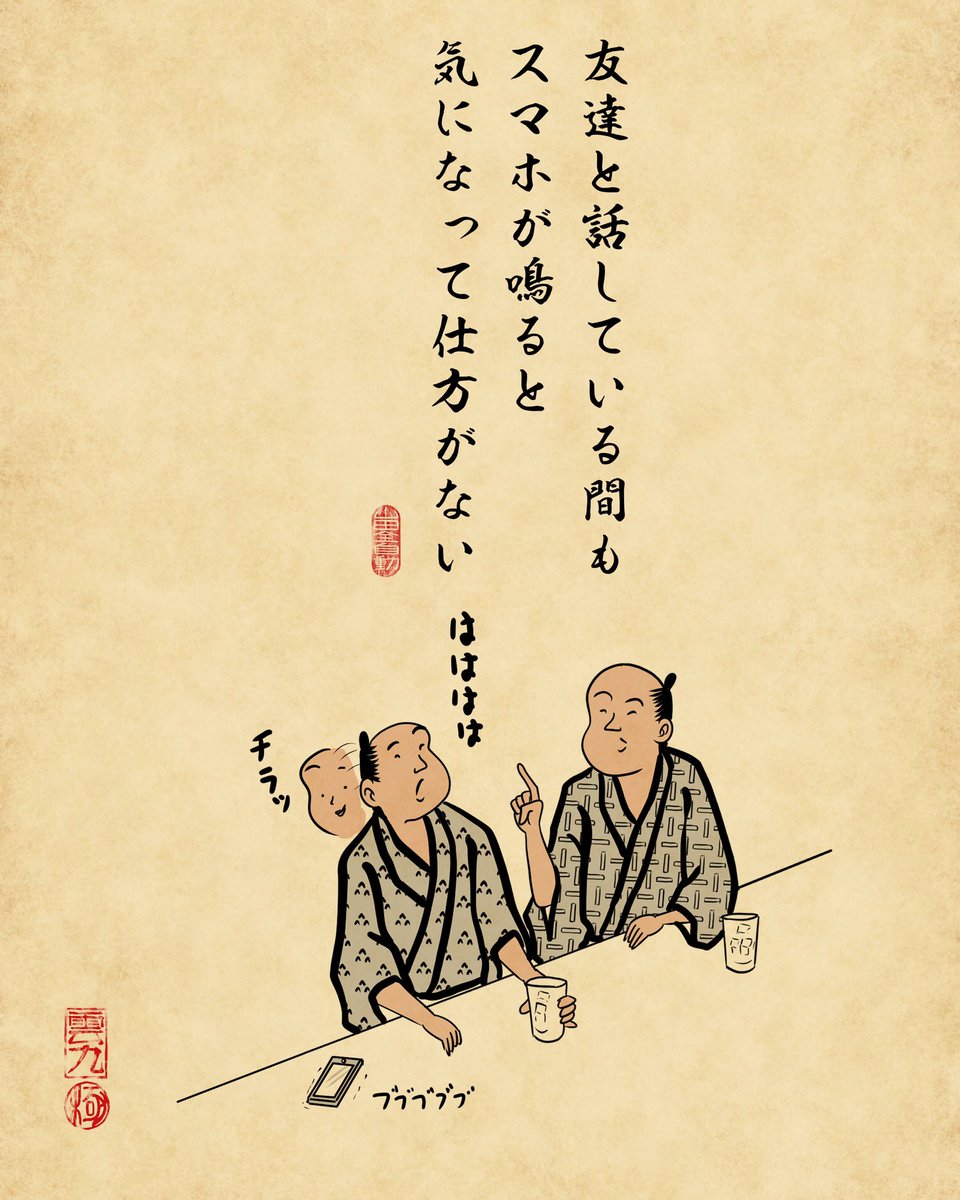 友達と話している間も
スマホが鳴ると
気になって仕方がない
はははは
チラッ
ブブブブブ
雲九
極